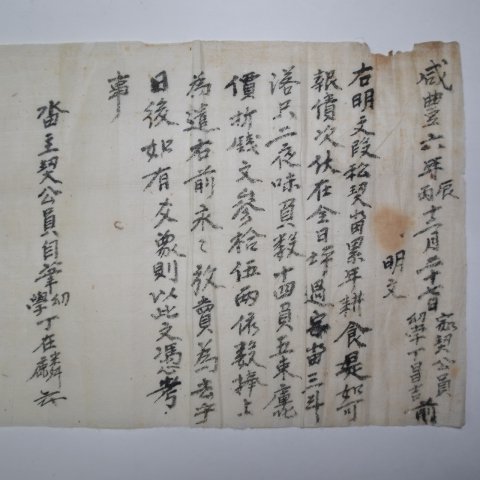 咸豐六年丙辰十二月二十七日 家契公員 幼學丁昌吉 前
明文
右明文段私契畓累年耕食是如可
報債次伏在全日坪遇字畓三斗
落只二夜味負數十四負五束廤
價折錢文參拾伍兩依數捧上
為遣右前永〻放賣為去乎
日後如有友象則以此文憑考
事
畓主契公員自筆 幼學丁在麟